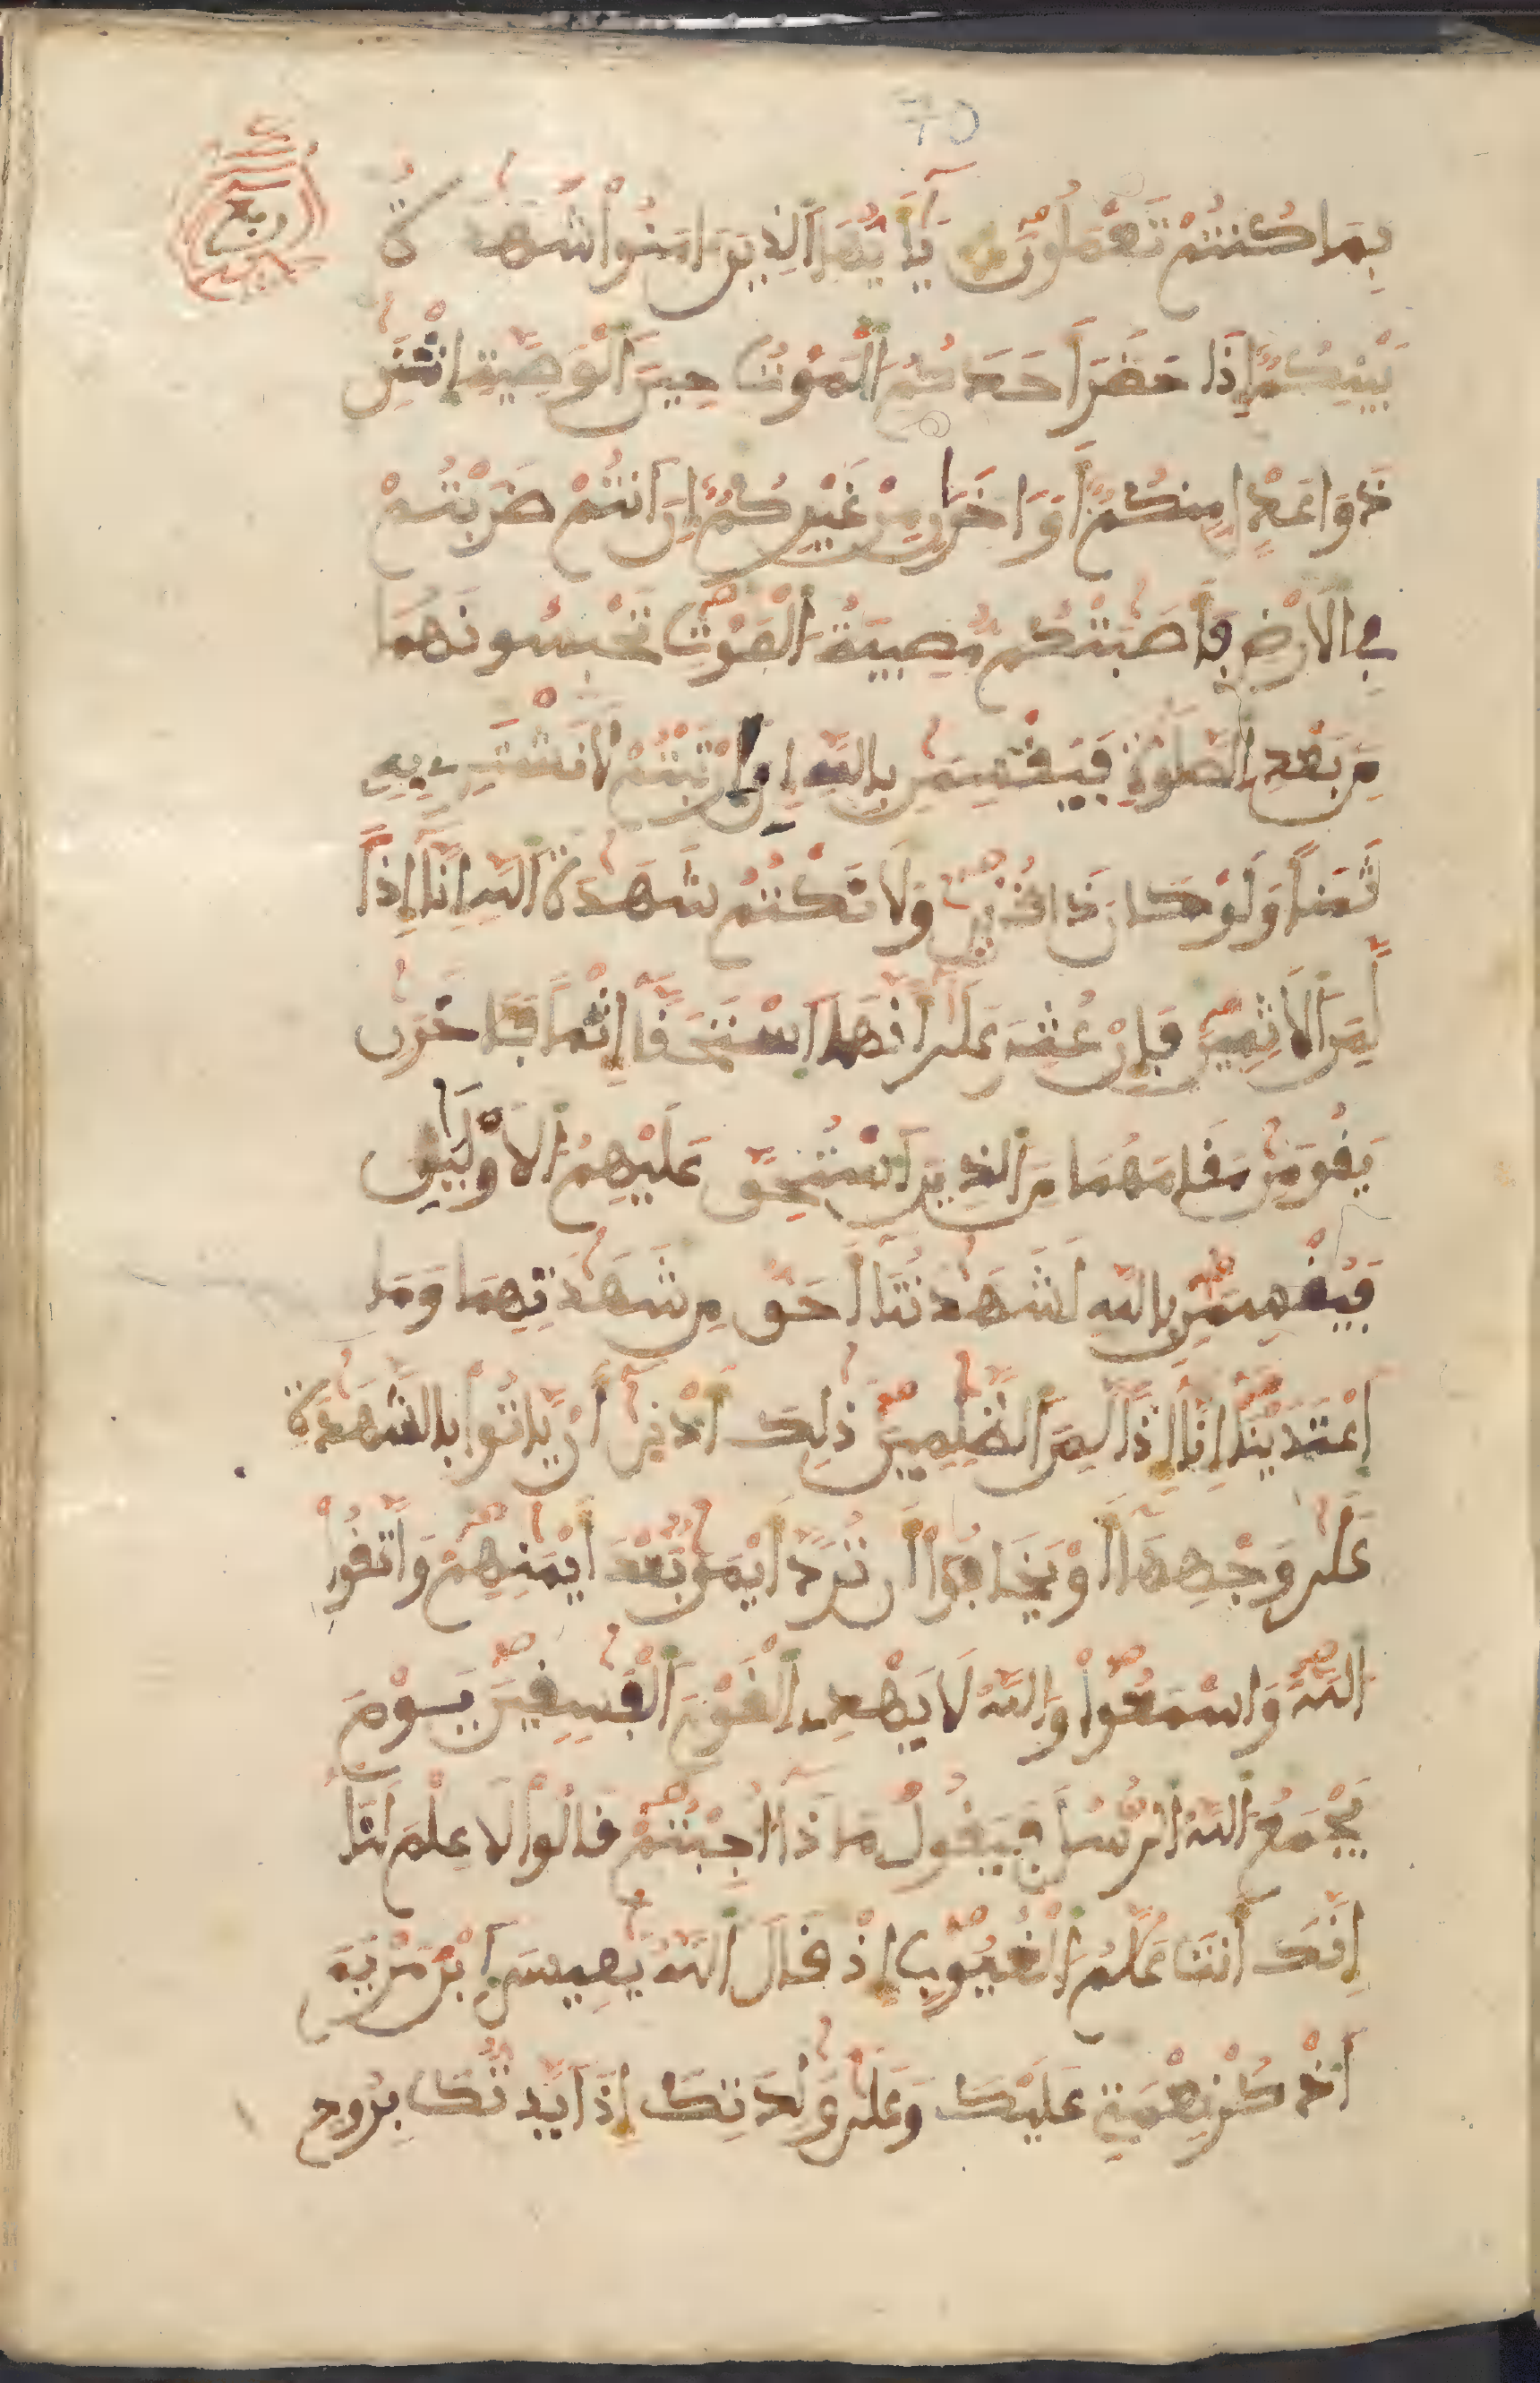 70
ربع
بِمَا كُنتُمْ تَعْمَلُونَ يَٰٓأَيُّهَا ٱلذِينَ ءَامَنُوا۟ شَهَٰدَةُ
بَيْنِكُمُۥٓ إِذَا حَضَرَ أَحَدَكُمُ ٱلْمَوْتُ حِينَ ٱلْوَصِيَّةِ ٱِثْنَٰنِ
ذَوَا عَدْلٍ مِّنكُمُۥٓ أَوَ ٰاخَرَانِ مِنْ غَيْرِكُمُۥٓ إِنَ اَنتُمْ ضَرَبْتُمْ
فِے اِ۬لَارْضِ فَأَصَٰبَتْكُم مُّصِيبَةُ ٱلْمَوْتِ تَحْبِسُونَهُمَا
مِنۢ بَعْدِ ٱلصَّلَوٰةِ فَيُقْسِمَٰنِ بِاللَّهِ إِنِ اِ۪رْتَبْتُمْ لَا نَشْتَرِے بِهِۦ
ثَمَناً وَلَوْ كَانَ ذَا قُرْبَىٰ وَلَا نَكْتُمُ شَهَٰدَةَ ٱللَّهِ إِنَّآ إِذاً
لَّمِنَ ٱلَاثِمِينَ فَإِنْ عُثِرَ عَلَىٰٓ أَنَّهُمَا ٱَسْتَحَقَّآ إِثْماً فَـَٔاخَرَٰنِ
يَقُومَٰنِ مَقَامَهُمَا مِنَ ٱلذِينَ ٱَسْتُحِقَّ عَلَيْهِمُ ٱلَاوْلَيَٰنِ
فَيُقْسِمَٰنِ بِاللَّهِ لَشَهَٰدَتُنَآ أَحَقُّ مِن شَهَٰدَتِهِمَا وَمَا
ٱَعْتَدَيْنَآ إِنَّآ إِذاً لَّمِنَ ٱلظَّٰلِمِينَ ذَٰلِكَ أَدْنَىٰٓ أَنْ يَّاتُوا۟ بِالشَّهَٰدَةِ
عَلَىٰ وَجْهِهَآ أَوْ يَخَافُوٓا۟ أَن تُرَدَّ أَيْمَٰنٌۢ بَعْدَ أَيْمَٰنِهِمْ وَاتَّقُوا۟
ٱللَّهَ وَاسْمَعُوا۟ وَاللَّهُ لَا يَهْدِے اِ۬لْقَوْمَ ٱلْفَٰسِقِينَ يَوْمَ
يَجْمَعُ ٱللَّهُ ٱلرُّسُلَ فَيَقُولُ مَاذَآ أُجِبْتُمْ قَالُوا۟ لَا عِلْمَ لَنَآ
إِنَّكَ أَنتَ عَلَّٰمُ ٱلْغُيُوبِ إِذْ قَالَ ٱللَّهُ يَٰعِيسَى اَ۪بْنَ مَرْيَمَ
ٱَذْكُرْ نِعْمَتِے عَلَيْكَ وَعَلَىٰ وَٰلِدَتِكَ إِذَ اَيَّدتُّكَ بِرُوحِ